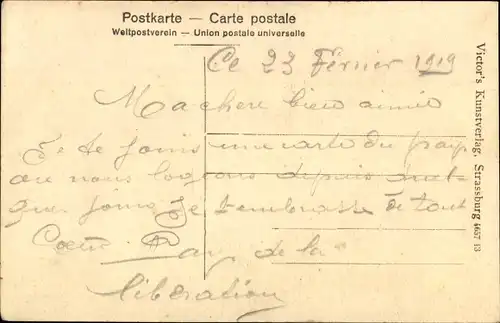 Postkarte — Carte postale
Weltpostverein — Union postale universelle
Ce 23 Février 1919
Ma chere bien aimée
Je te joins une carte du pays
ou nous logeons depuis quel-
ques jours Je t'embrasse de tout
Coeur
de la
libération
Victor's Kunstverlag, Strassburg 4657 13